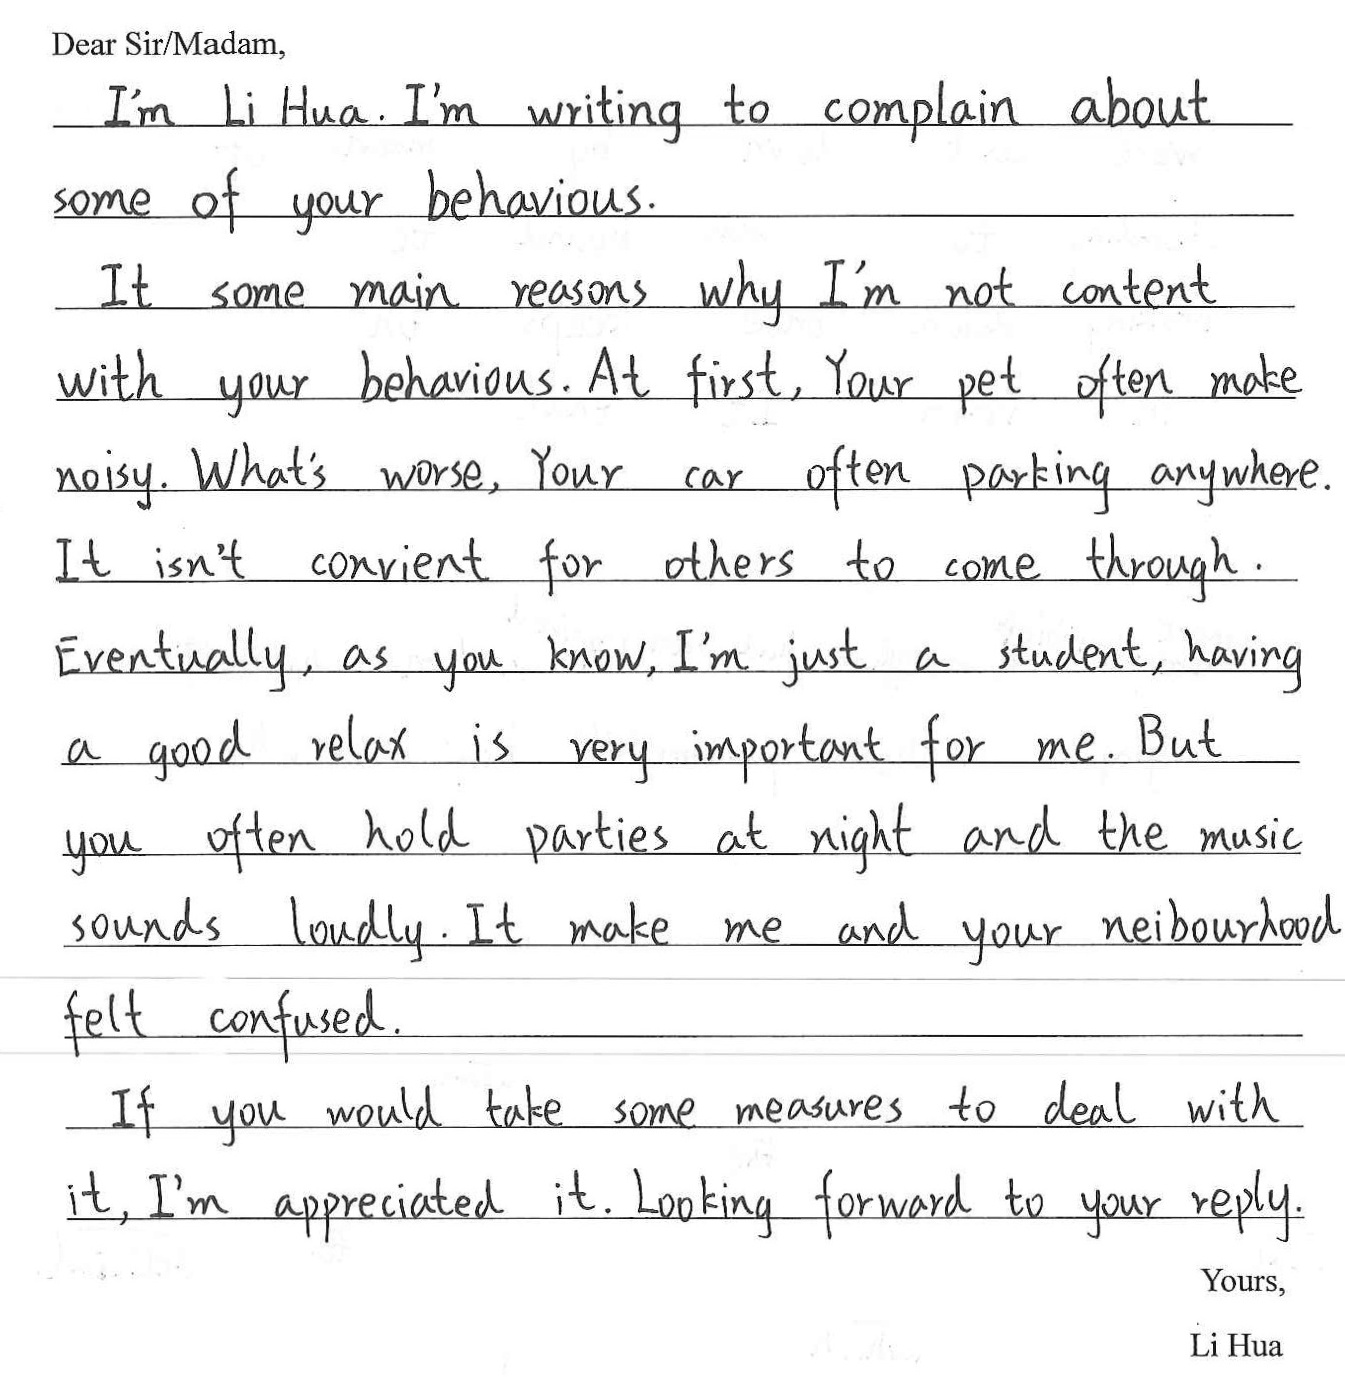 Dear Sir/Madam,
I'm Li Hua. I'm writing to complain about
some of your behavious.
It some main reasons why I'm not content
with your behavious. At first, Your pet often make
noisy. What's worse, Your car often parking anywhere.
It isn't convient for others to come through.
Eventually, as you know, I'm just a student, having
a good relax is very important for me. But
you often hold parties at night and the music
sounds loudly. It make me and your neibourhood
felt confused.
If you would take some measures to deal with
it, I'm appreciated it. Looking forward to your reply.
Yours,
Li Hua